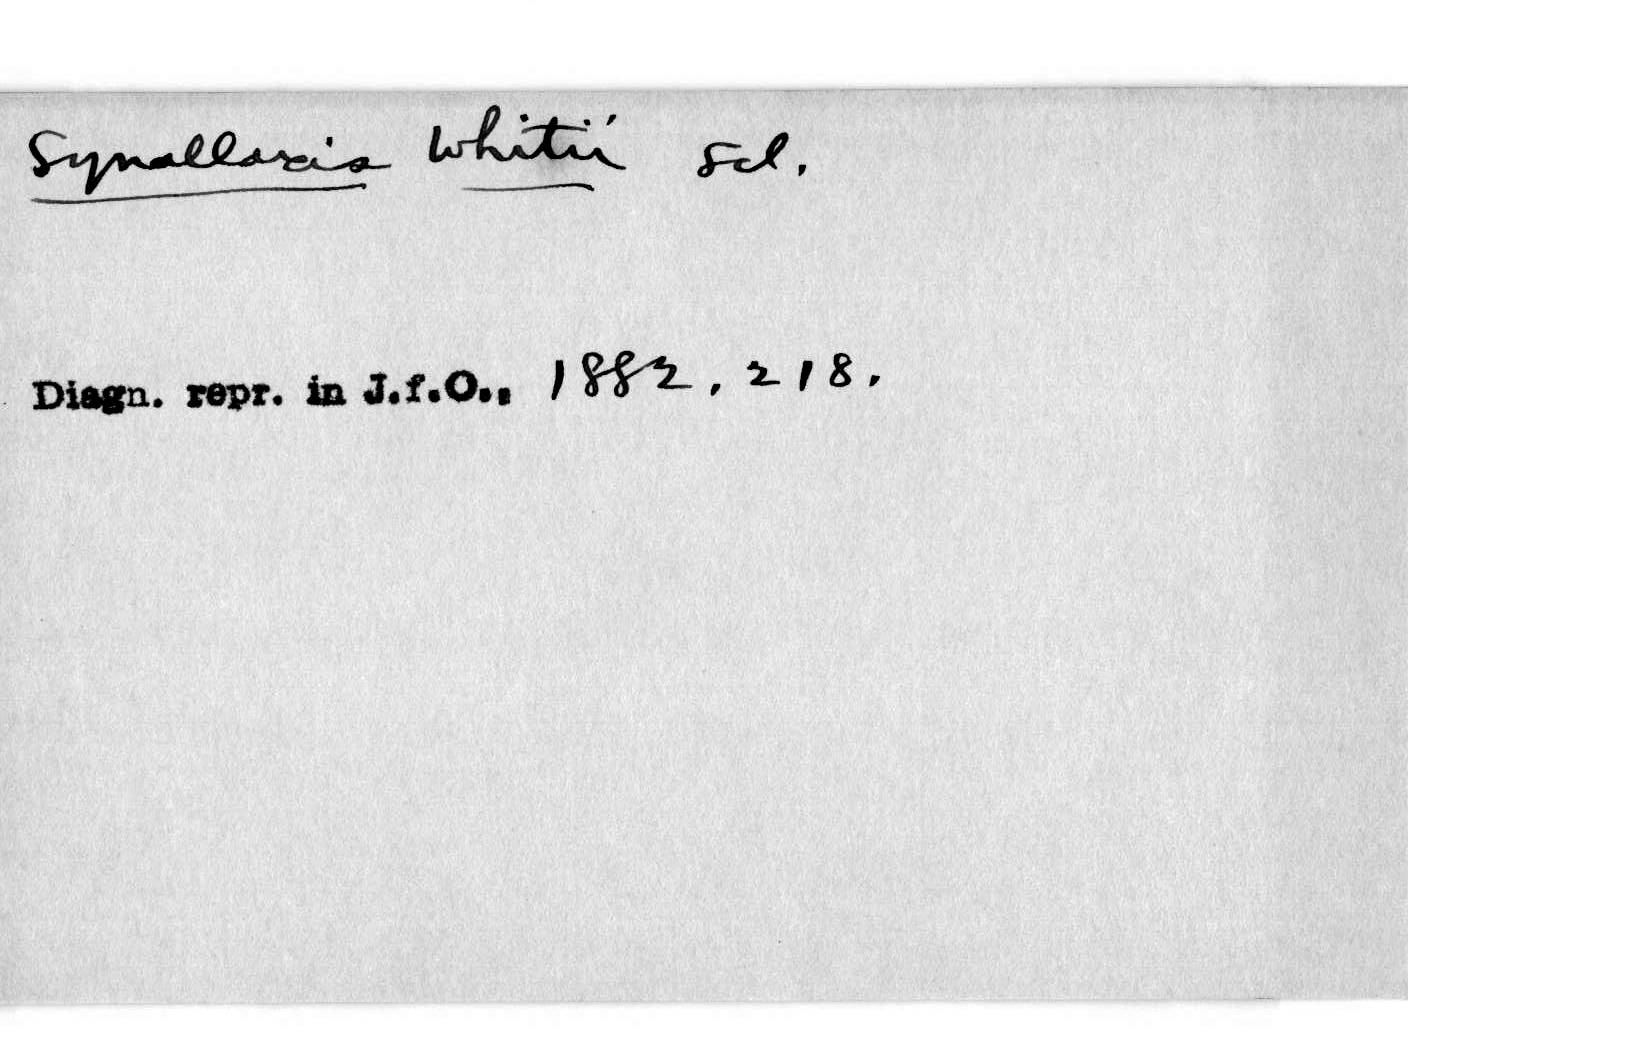 Synallaxis Whitii Scl.
Diagn. repr. in J.f.O., 1882, 218.